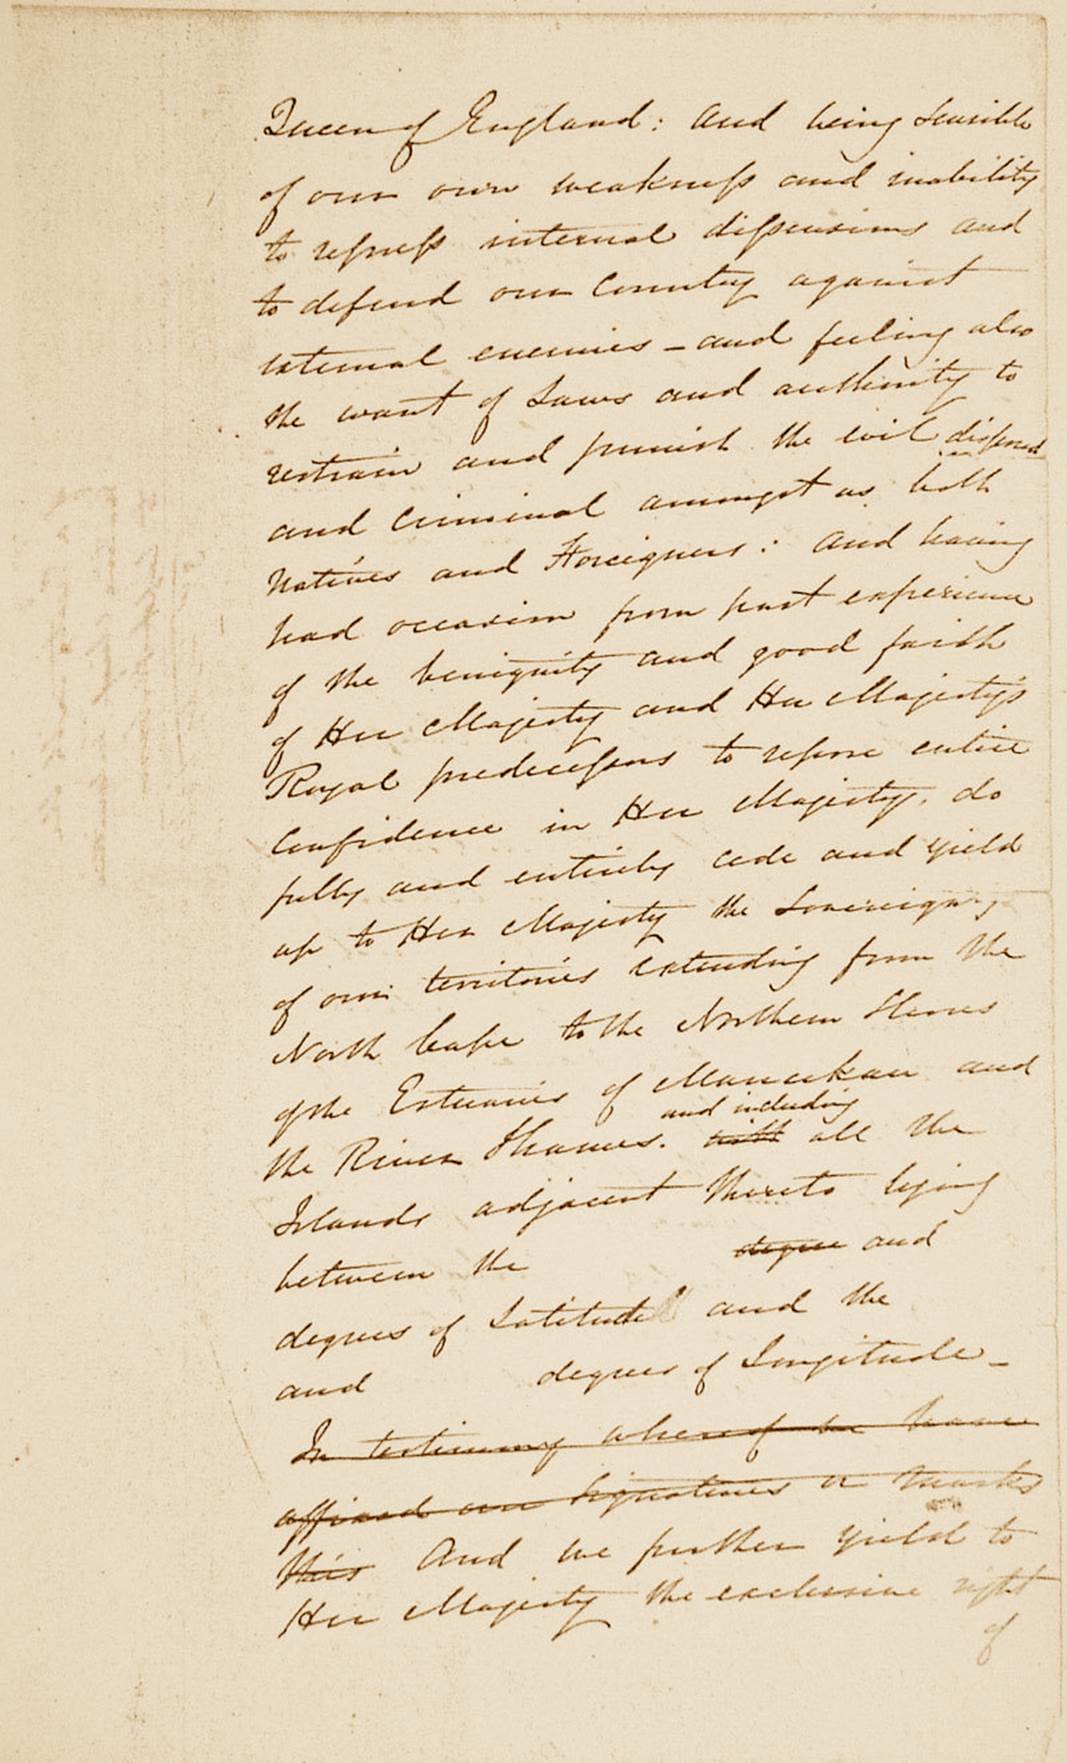 Queen of England: and being sensible
of our own weakness and inability
to repress internal dissensions and
to defend our Country against
external enemies – and feeling also
the want of Laws and authority to
restrain and punish the evil disposed
and Criminal amongst us both
Natives and Foreigners: And having
had occasion from past experience
of the benignity and good faith
of Her Majesty and Her Majesty's
Royal predecessors to repose entire
Confidence in Her Majesty, do
fully and entirely cede and yield
up to Her Majesty the Sovereignty
of our territories extending from the
North Cape to the Northern Shores
of the Estuaries of Manukau and
and including
the River Thames. with all the
Islands adjacent thereto lying
between the degree and
degrees of Latitude and the
and degrees of Longitude –
In testimony whereof we have
affixed our signatures or marks
this And we further yield to
Her Majesty the exclusive right
of